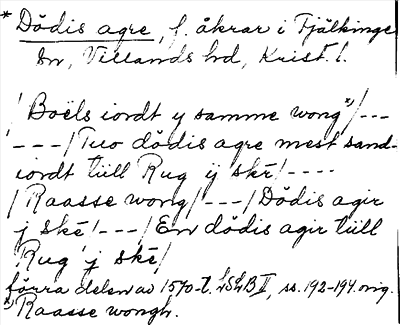 * Dödis agre, f. åkrar i Fjälkinge
sn, Villands hd, Krist. l.
/ Boëls iordt y samme wong *)/---
---/ Tuo dödis agre mest sand-
iordt tüll Rug ÿ skë/----
/ Raasse wong/---/ Dödis agir
j ské/---/ En dödis agir tüll
Rug j ské/
förra delen av 1570-t. LSLB II, ss. 192-194. orig.
*) Raasse wongh.